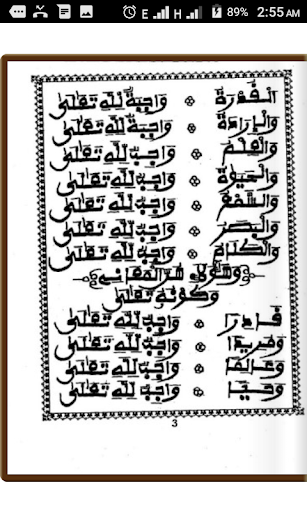 E H 89% 2:55 AM
الْقُدْرَةُ وَاجِبَةٌ لِلَّهِ تَعَالَى
وَالْإِرَادَةُ وَاجِبَةٌ لِلَّهِ تَعَالَى
وَالْعِلْمُ وَاجِبٌ لِلَّهِ تَعَالَى
وَالْحَيَوةُ وَاجِبٌ لِلَّهِ تَعَالَى
وَالسَّمْعُ وَاجِبٌ لِلَّهِ تَعَالَى
وَالْبَصَرُ وَاجِبٌ لِلَّهِ تَعَالَى
وَالْكَلَامُ وَاجِبٌ لِلَّهِ تَعَالَى
الْمَعَانِى
وَكَوْنُهُ تَعَالَى
قَادِرًا وَاجِبٌ لِلَّهِ تَعَالَى
وَمُرِيدًا وَاجِبٌ لِلَّهِ تَعَالَى
وَعَالِمًا وَاجِبٌ لِلَّهِ تَعَالَى
وَحَيًّا وَاجِبٌ لِلَّهِ تَعَالَى
3